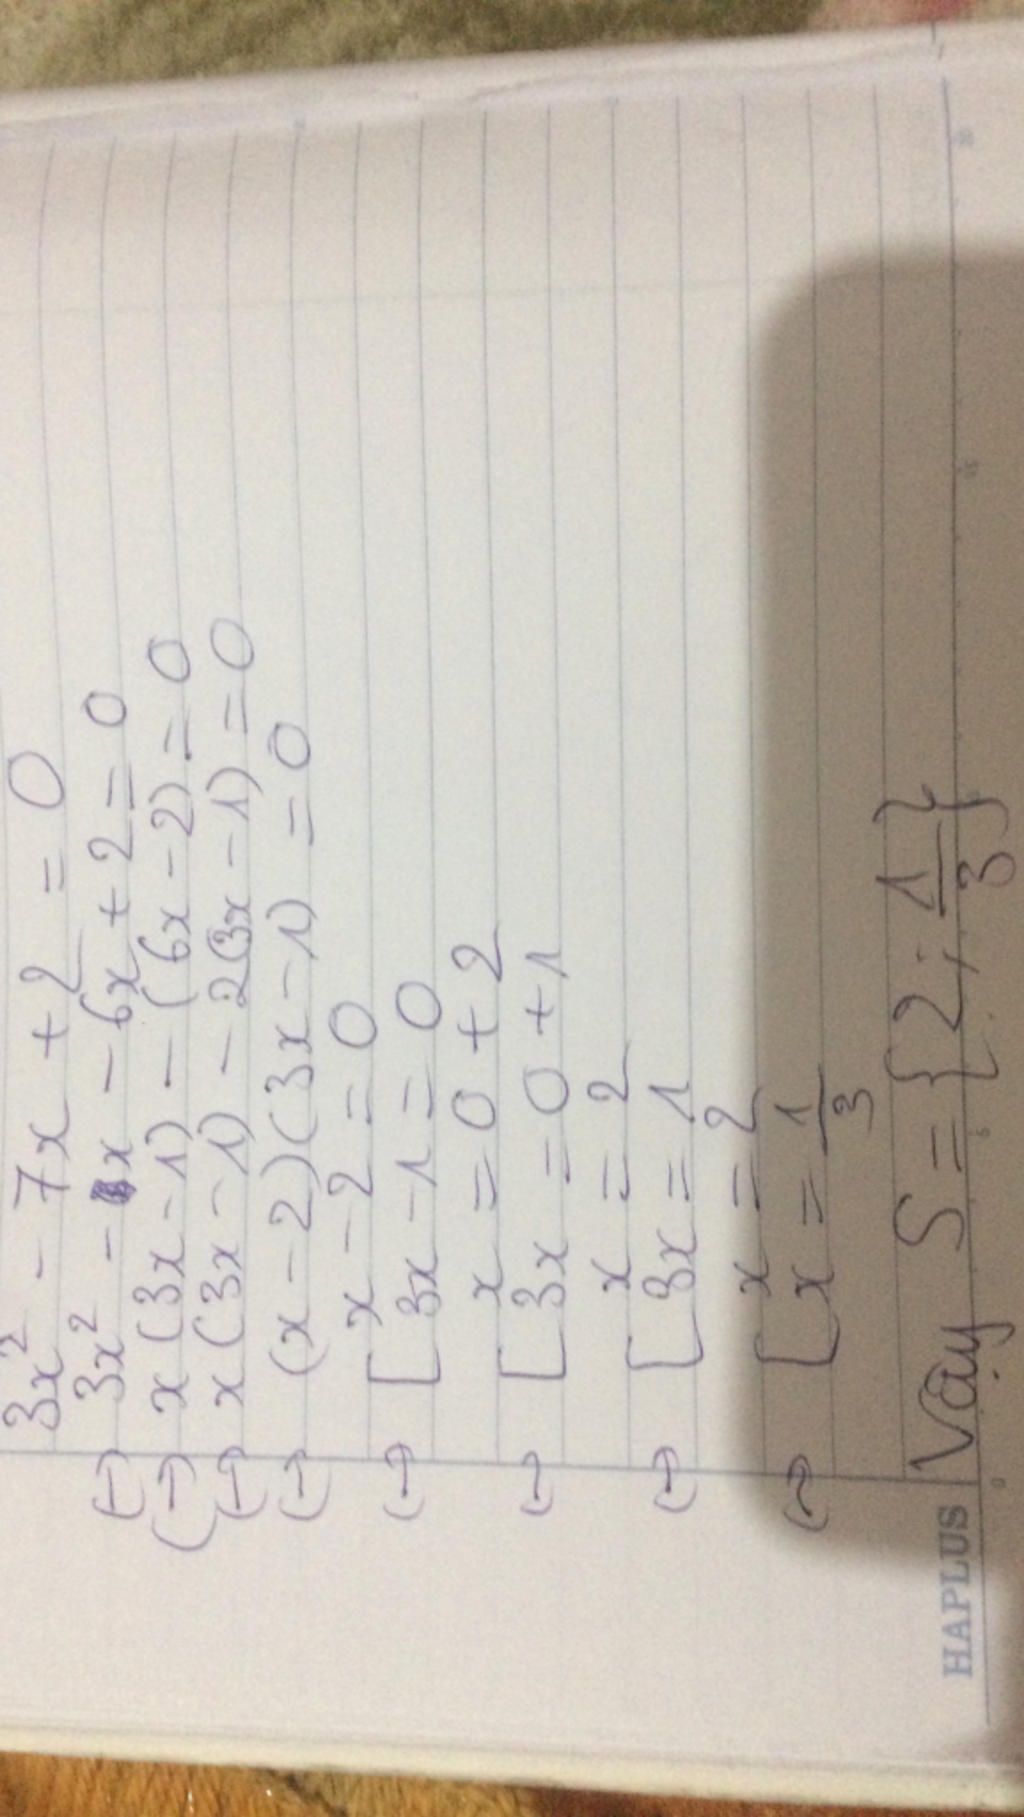 3x² - 7x + 2 = 0
(→) 3x² - x - 6x + 2 = 0
(→) x(3x - 1) - (6x - 2) = 0
(→) x(3x - 1) - 2(3x - 1) = 0
(→) (x - 2)(3x - 1) = 0
(→) [ x - 2 = 0
3x - 1 = 0
(→) [ x = 0 + 2
3x = 0 + 1
(→) [ x = 2
3x = 1
(→) [ x = 2
x = 1/3
Vậy S = {2; 1/3}
HAPLUS
0
5